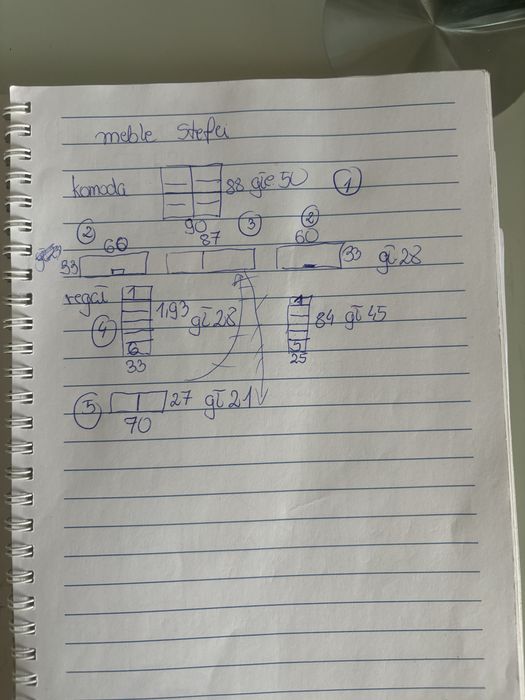 meble Stefci
komoda 88 głę 50 1
90
2 60 87 3 2 60
33 33 gł 28
regał 1 1,93 gł 28 1 84 gł 45
4 6 5
33 25
5 27 gł 21
70